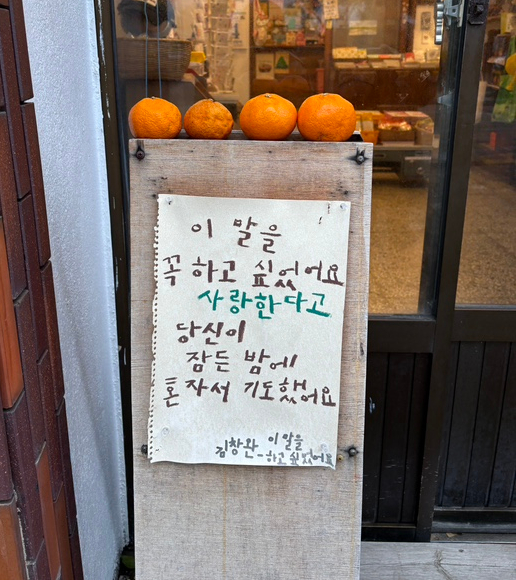 이 말을
꼭 하고 싶었어요
사랑한다고
당신이
잠든 밤에
혼자서 기도했어요
김창완 - 이 말을
하고 싶었어요